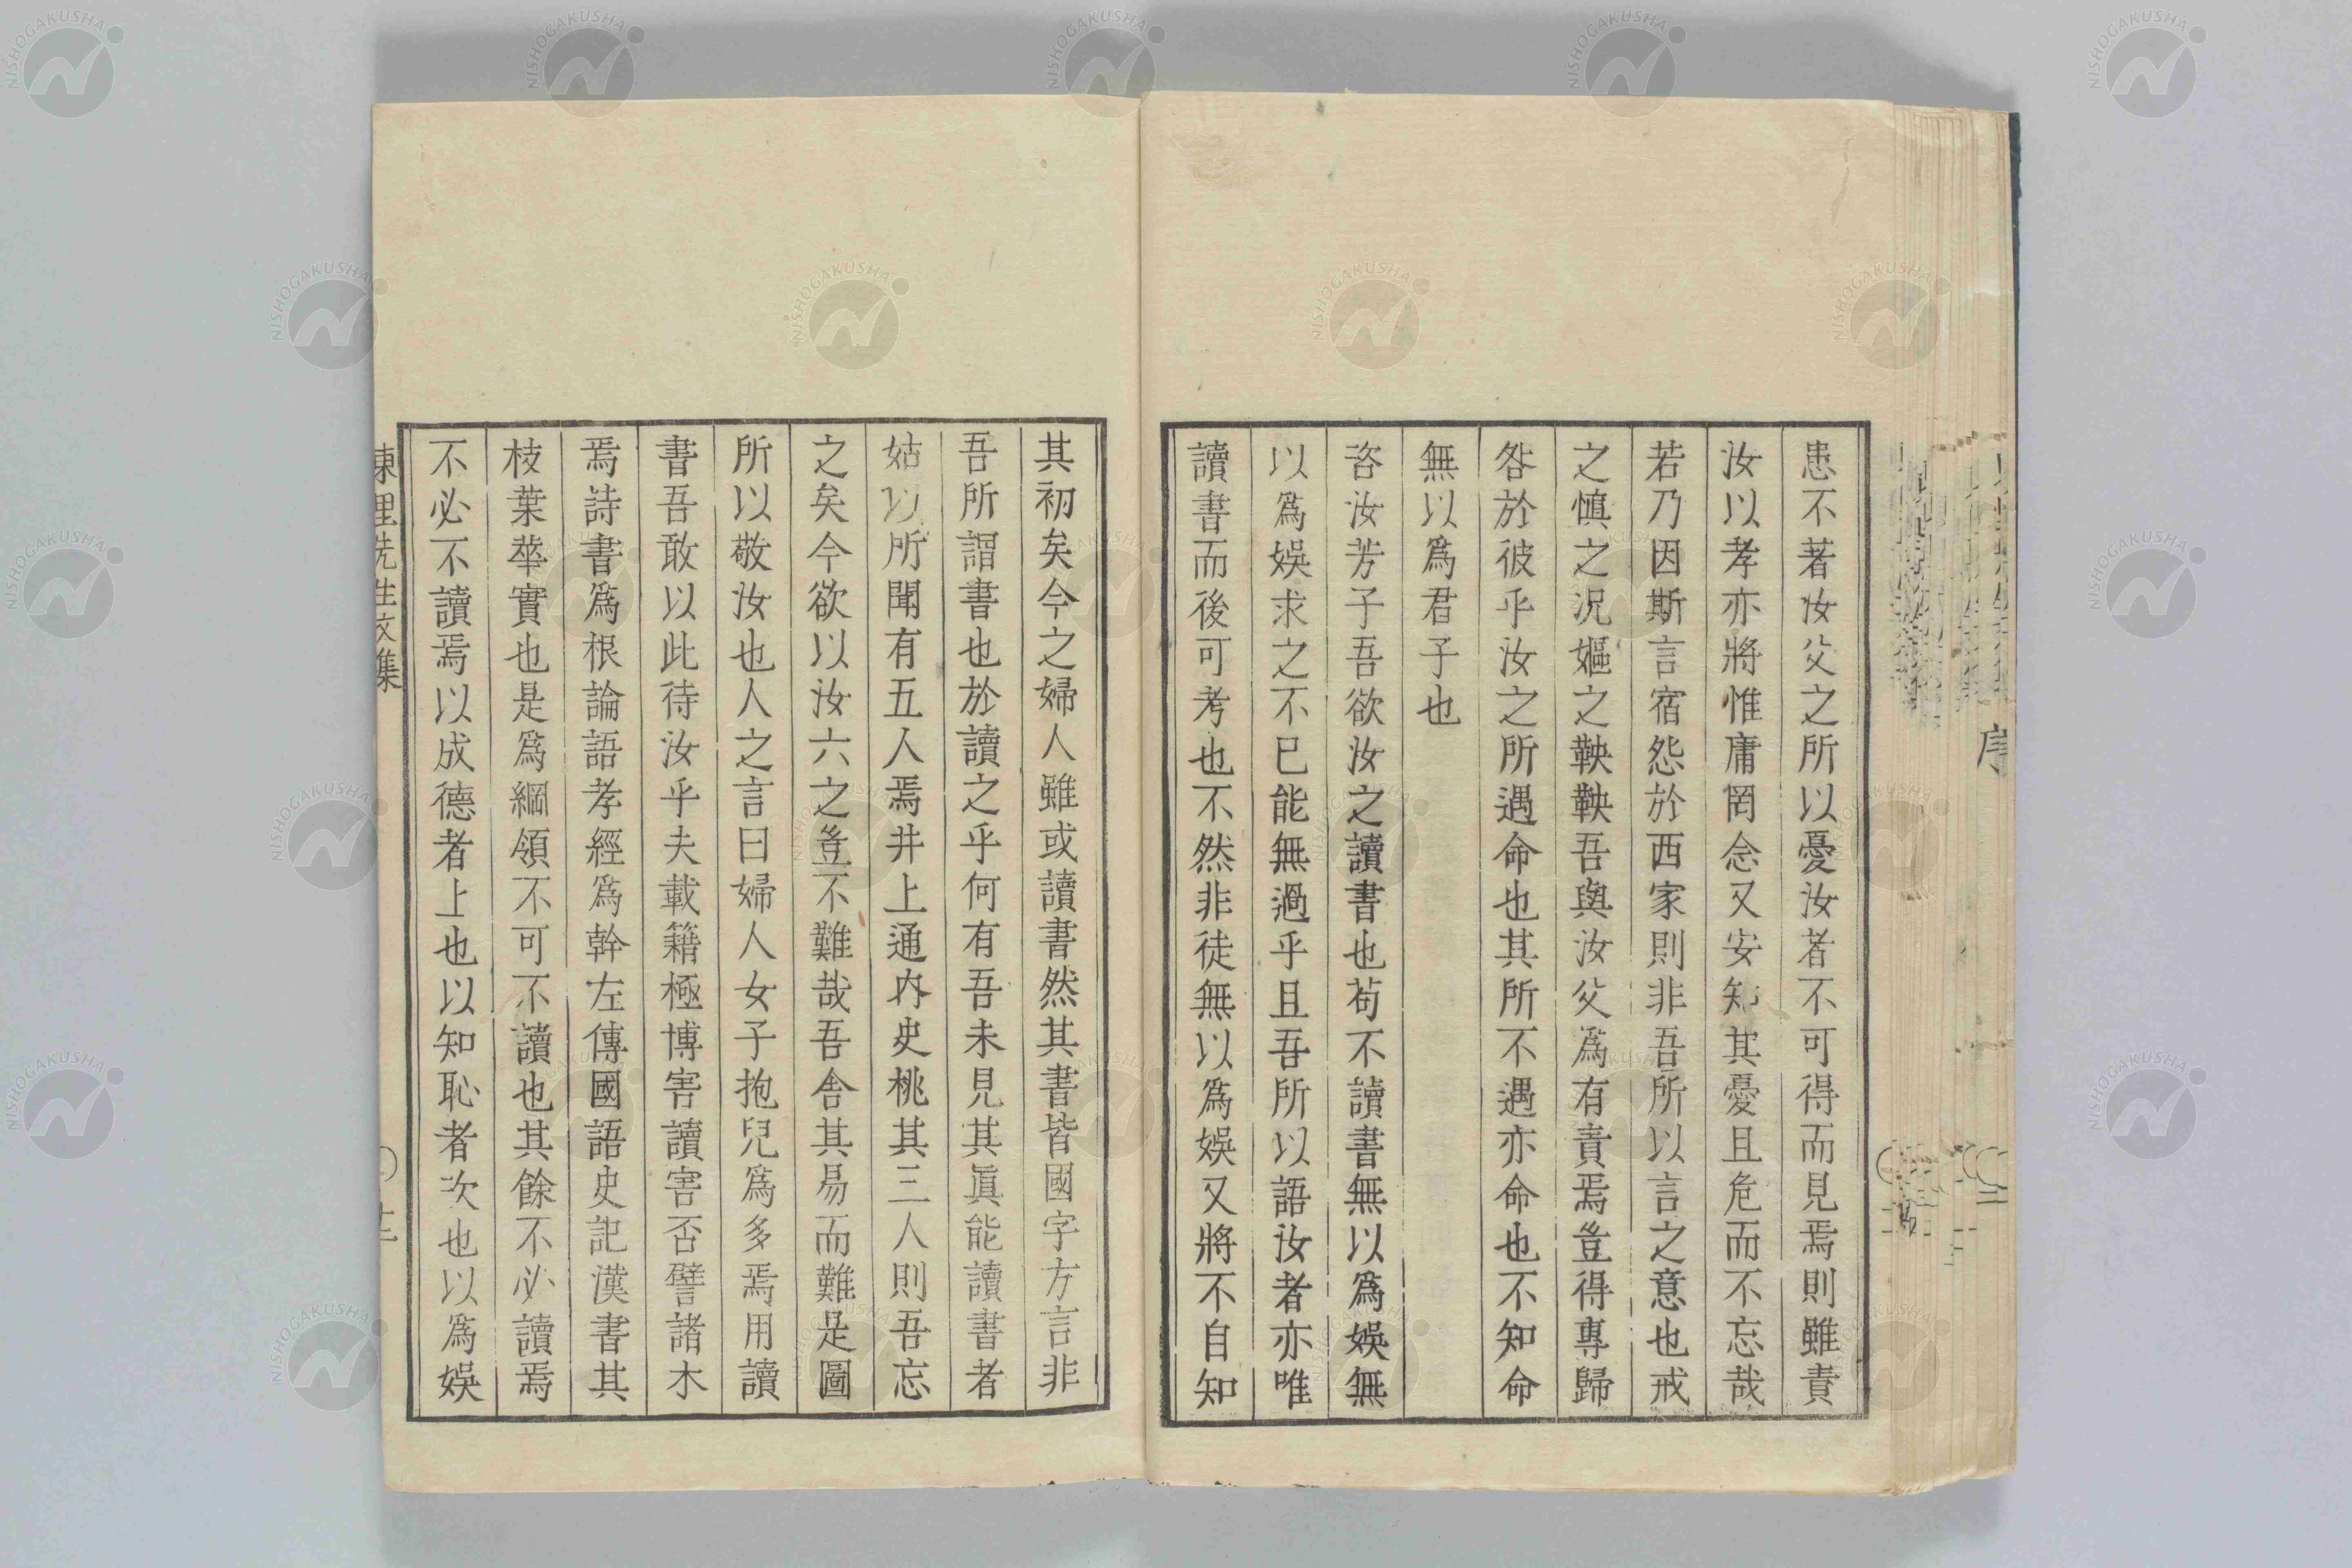 患不著汝父之所以憂汝者不可得而見焉則雖責
汝以孝亦將惟庸罔念又安知其憂且危而不忘哉
若乃因斯言宿怨於西家則非吾所以言之意也戒
之慎之況嫗之鞅鞅吾與汝父爲有責焉豈得專歸
咎於彼乎汝之所遇命也其所不遇亦命也不知命
無以爲君子也
咨汝芳子吾欲汝之讀書也苟不讀書無以爲娛無
以爲娛求之不已能無過乎且吾所以語汝者亦唯
讀書而後可考也不然非徒無以爲娛又將不自知
其初矣今之婦人雖或讀書然其書皆國字方言非
吾所謂書也於讀之乎何有吾未見其眞能讀書者
姑以所聞有五人焉井上通內史桃其三人則吾忘
之矣今欲以汝六之豈不難哉吾舍其易而難是圖
所以敬汝也人之言曰婦人女子抱兒爲多焉用讀
書吾敢以此待汝乎夫載籍極博害讀害否譬諸木
焉詩書爲根論語孝經爲幹左傳國語史記漢書其
枝葉華實也是爲綱領不可不讀也其餘不必讀焉
不必不讀焉以成德者上也以知恥者次也以爲娛
東里先生文集
序
NISHOGAKUSHA